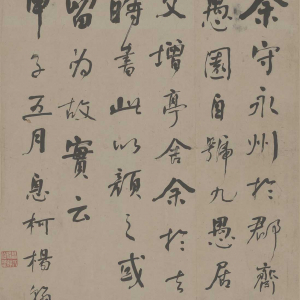 余守永州於郡齋
愚園自號九愚居
又增亭舍余於去
時書此以顏之或
留為故實云
甲子五月息柯楊翰